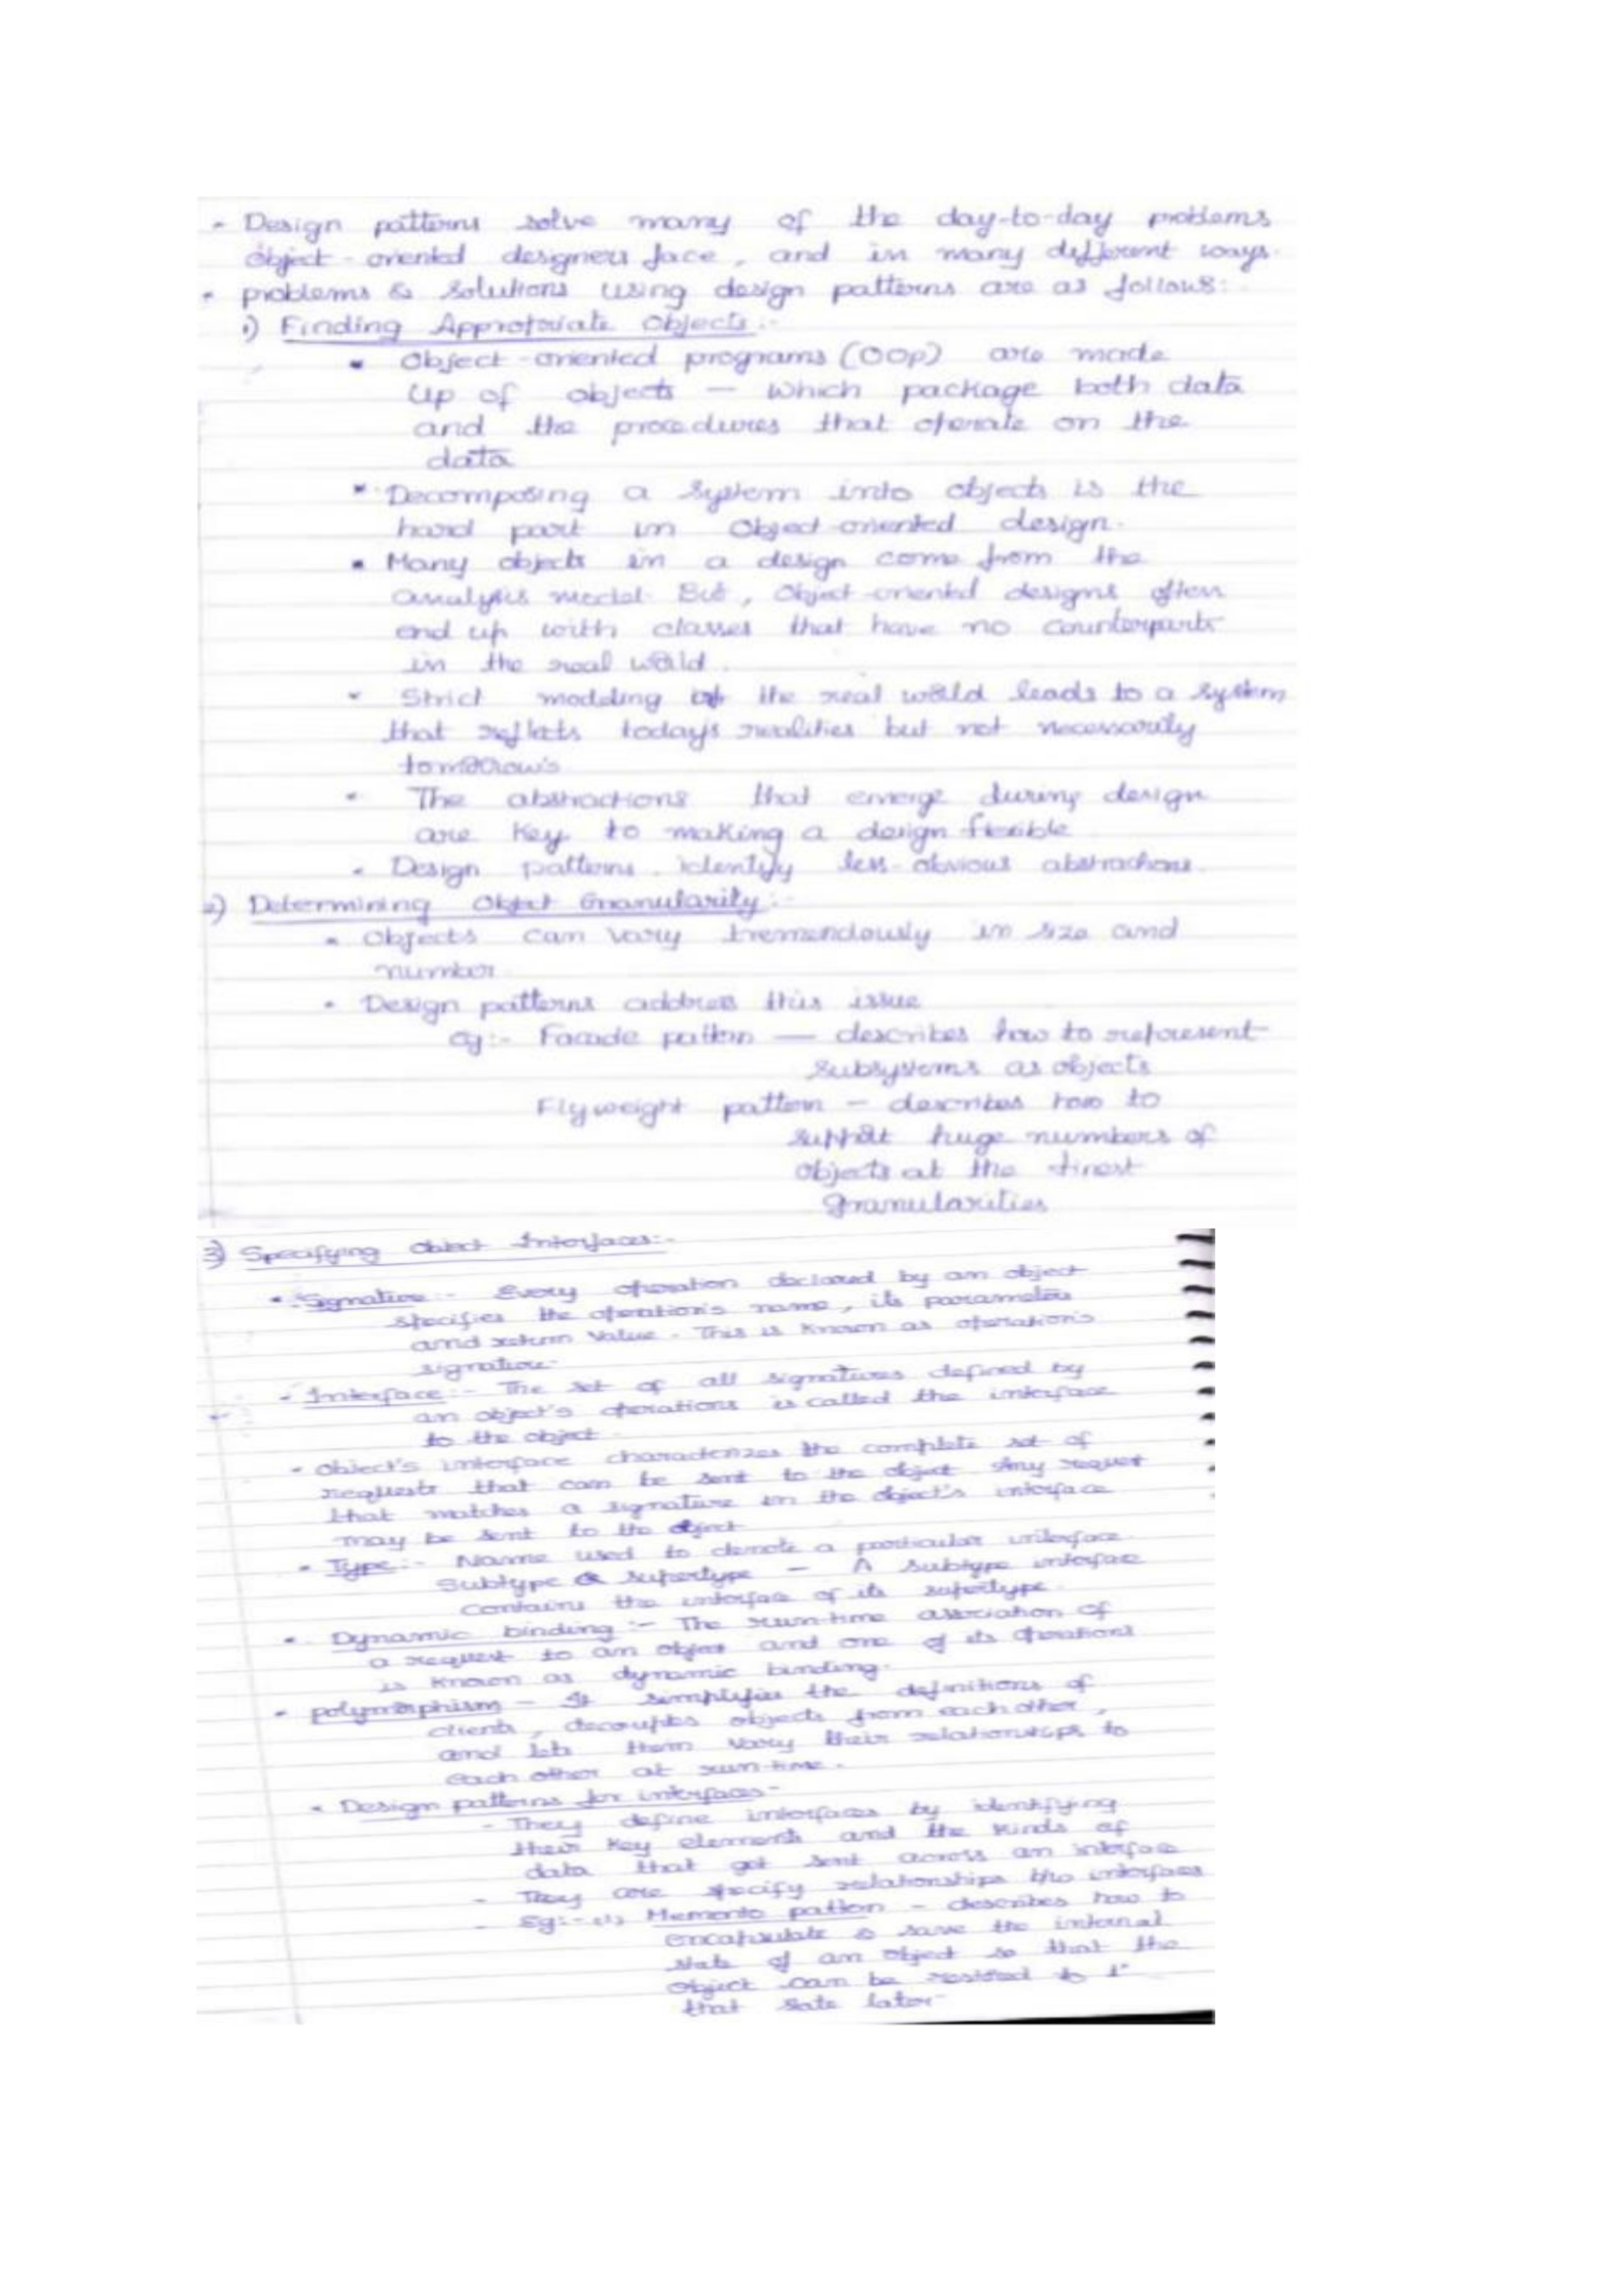 - Design patterns solve many of the day-to-day problems
object-oriented designers face, and in many different ways.
- problems & solutions using design patterns are as follows:
1) Finding Appropriate Objects:-
Object-oriented programs (OOP) are made
up of objects — which package both data
and the procedures that operate on the
data
Decomposing a system into objects is the
hard part in Object-oriented design.
Many objects in a design come from the
analysis model. But, Object-oriented designs often
end up with classes that have no counterparts
in the real world.
Strict modeling of the real world leads to a system
that reflects today's realities but not necessarily
tomorrow's
The abstractions that emerge during design
are key to making a design flexible
Design patterns identify less-obvious abstractions.
2) Determining Object Granularity:-
Objects can vary tremendously in size and
number
Design patterns address this issue
eg:- Facade pattern — describes how to represent
subsystems as objects
Flyweight pattern - describes how to
support huge numbers of
objects at the finest
granularities
3) Specifying Object Interfaces:-
Signature:- Every operation declared by an object
specifies the operation's name, its parameters
and return value. This is known as operation's
signature.
- Interface:- The set of all signatures defined by
an object's operations is called the interface
to the object.
- Object's interface characterizes the complete set of
requests that can be sent to the object. Any request
that matches a signature in the object's interface
may be sent to the object
Type:- Name used to denote a particular interface.
Subtype & supertype - A subtype interface
contains the interface of its supertype.
Dynamic binding:- The run-time association of
a request to an object and one of its operations
is known as dynamic binding.
polymorphism - It simplifies the definitions of
clients, decouples objects from each other,
and lets them vary their relationships to
each other at run-time.
Design patterns for interfaces-
- They define interfaces by identifying
their key elements and the kinds of
data that get sent across an interface
- They are specify relationships b/w interfaces
- Eg:- (1) Memento pattern - describes how to
encapsulate & save the internal
state of an object so that the
object can be restored to
that sate later